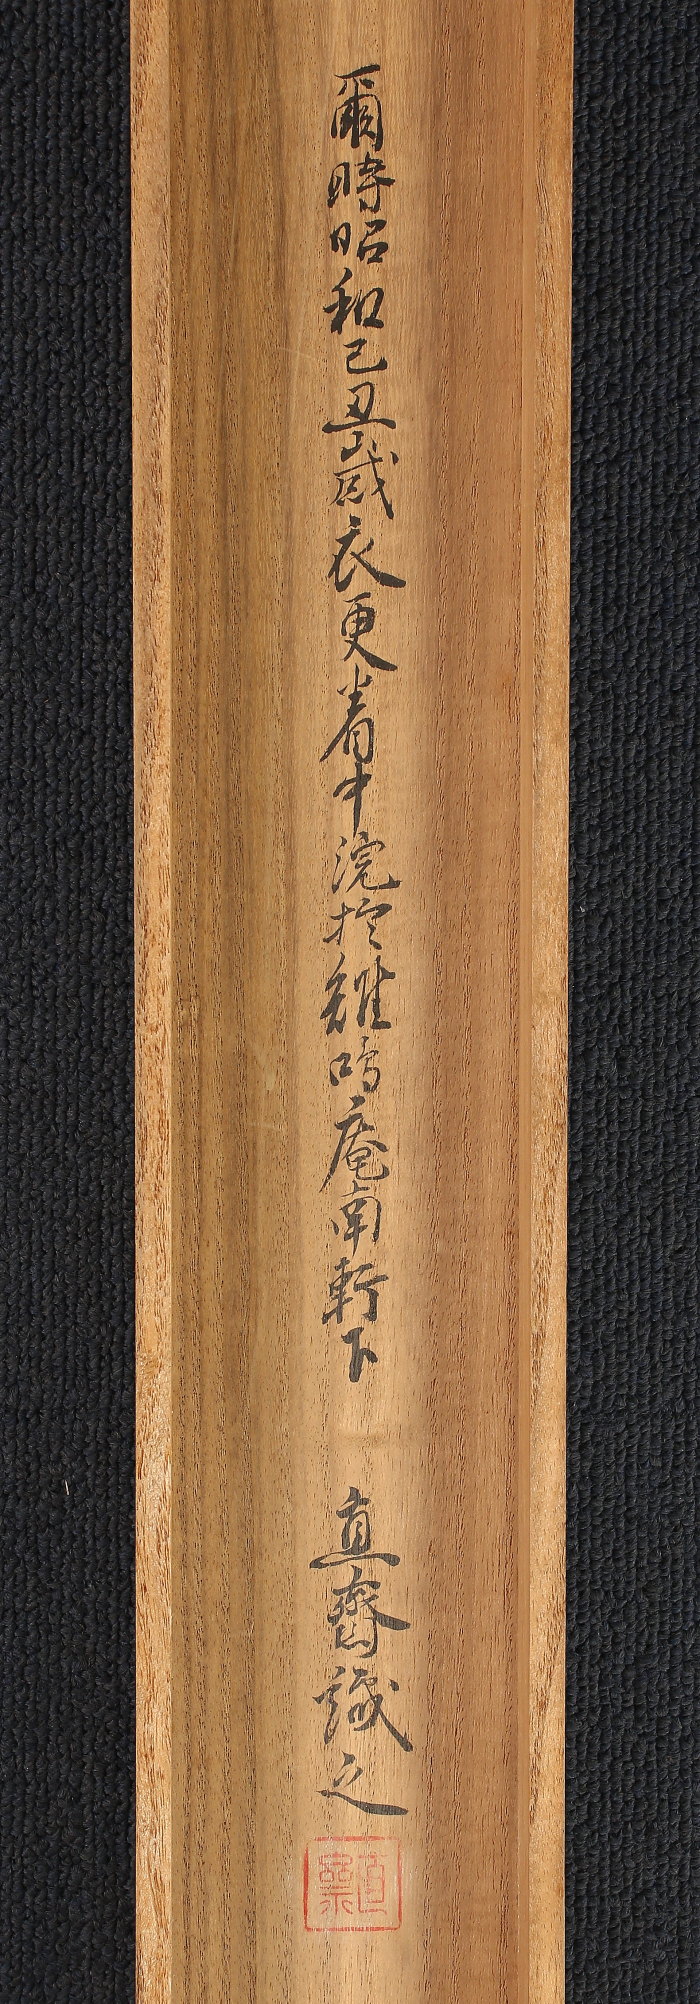 爾時昭和己丑歳衣更着中浣於雞鳴庵南軒下
直齋識之